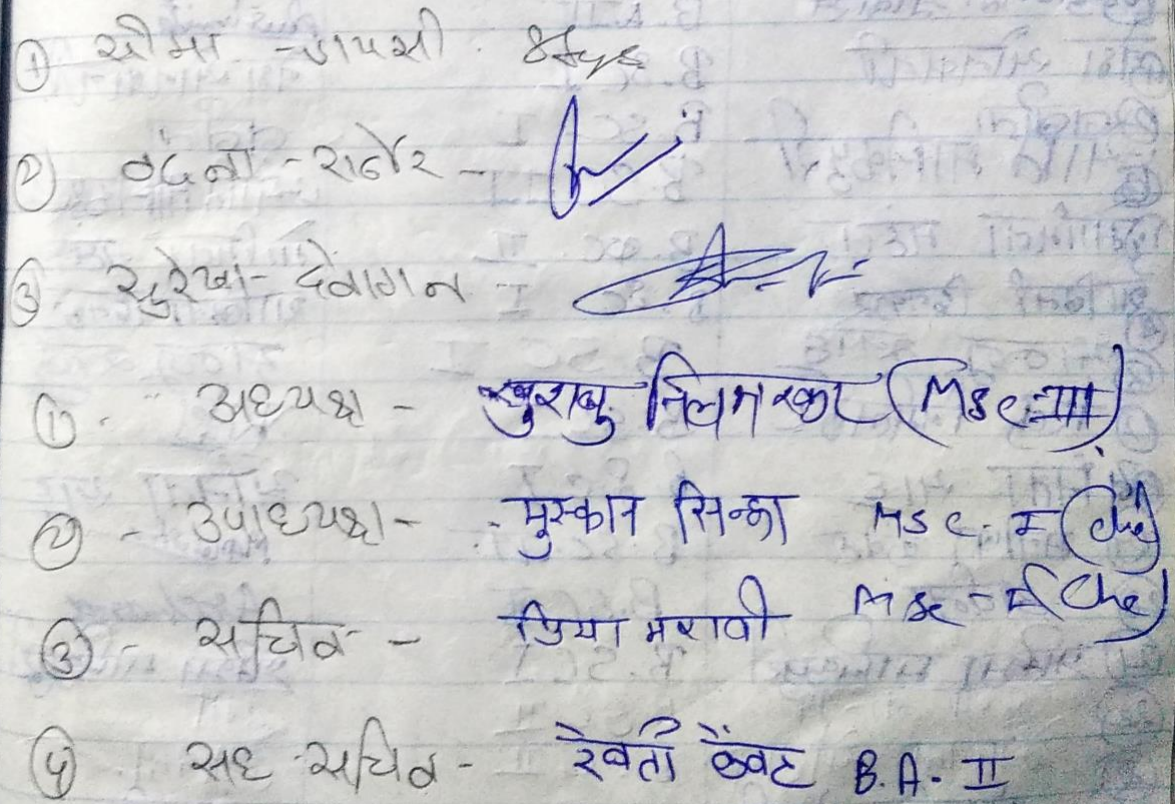 ① सीमा - जायसी
② वंदना - राठौर -
③ सुरेखा - देवांगन -
① अध्यक्ष - खुशबु निलमरकर (Msc-III)
② - उपाध्यक्ष - मुस्कान सिन्हा Msc - I (Che)
③ - सचिव - प्रिया मरावी Msc - I (Che)
④ सह सचिव - रेवती केंवट B.A - II